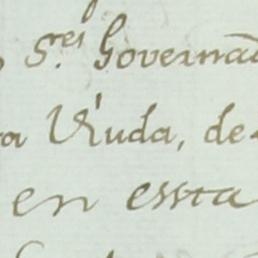 S.res Governad
a Viuda, de-
en essta